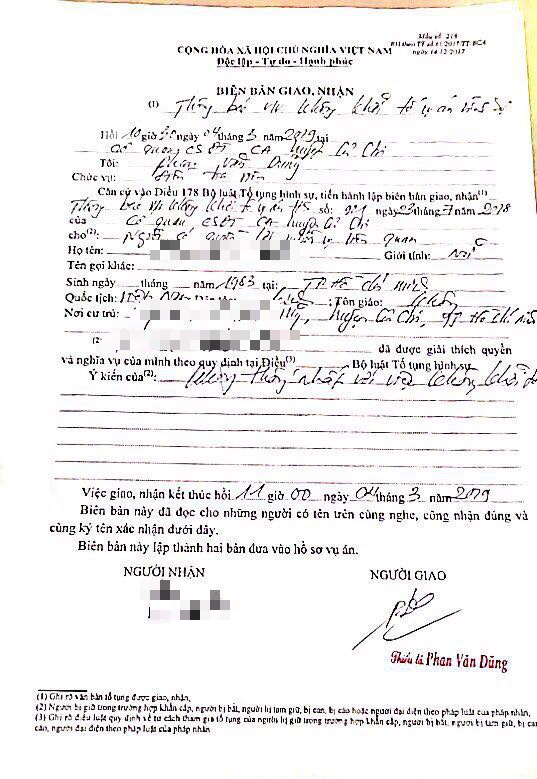 Mẫu số: 218
BH theo TT số 61/2017/TT-BCA
ngày 14/12/2017
CỘNG HÒA XÃ HỘI CHỦ NGHĨA VIỆT NAM
Độc lập - Tự do - Hạnh phúc
BIÊN BẢN GIAO, NHẬN
(1) Thông báo v/v không khởi tố vụ án hình sự
Hồi 10 giờ 30 ngày 04 tháng 3 năm 2019 tại
Cơ quan CSĐT CA huyện Củ Chi
Tôi: Phan Văn Dũng
Chức vụ: Điều tra viên
Căn cứ vào Điều 178 Bộ luật Tố tụng hình sự, tiến hành lập biên bản giao, nhận(1)
Thông báo v/v không khởi tố vụ án HS số: 921 ngày 23 tháng 7 năm 2018
của Cơ quan CSĐT CA huyện Củ Chi
cho(2): Người có quyền lợi nghĩa vụ liên quan
Họ tên: Giới tính: Nữ
Tên gọi khác:
Sinh ngày tháng năm 1983 tại: TP Hồ Chí Minh
Quốc tịch: Việt Nam ; Tôn giáo: Không
Nơi cư trú: Mỹ, huyện Củ Chi, TP Hồ Chí Minh
(2 đã được giải thích quyền
và nghĩa vụ của mình theo quy định tại Điều(3) Bộ luật Tố tụng hình sự.
Ý kiến của(2): Không thống nhất với việc không khởi tố
Việc giao, nhận kết thúc hồi 11 giờ 00 ngày 04 tháng 3 năm 2019
Biên bản này đã đọc cho những người có tên trên cùng nghe, công nhận đúng và
cùng ký tên xác nhận dưới đây.
Biên bản này lập thành hai bản đưa vào hồ sơ vụ án.
NGƯỜI NHẬN NGƯỜI GIAO
Thiếu tá Phan Văn Dũng
(1) Ghi rõ văn bản tố tụng được giao, nhận,
(2) Người bị giữ trong trường hợp khẩn cấp, người bị bắt, người bị tạm giữ, bị can, bị cáo hoặc người đại diện theo pháp luật của pháp nhân.
(3) Ghi rõ điều luật quy định về tư cách tham gia tố tụng của người bị giữ trong trường hợp khẩn cấp, người bị bắt, người bị tạm giữ, bị can, bị
cáo, người đại diện theo pháp luật của pháp nhân